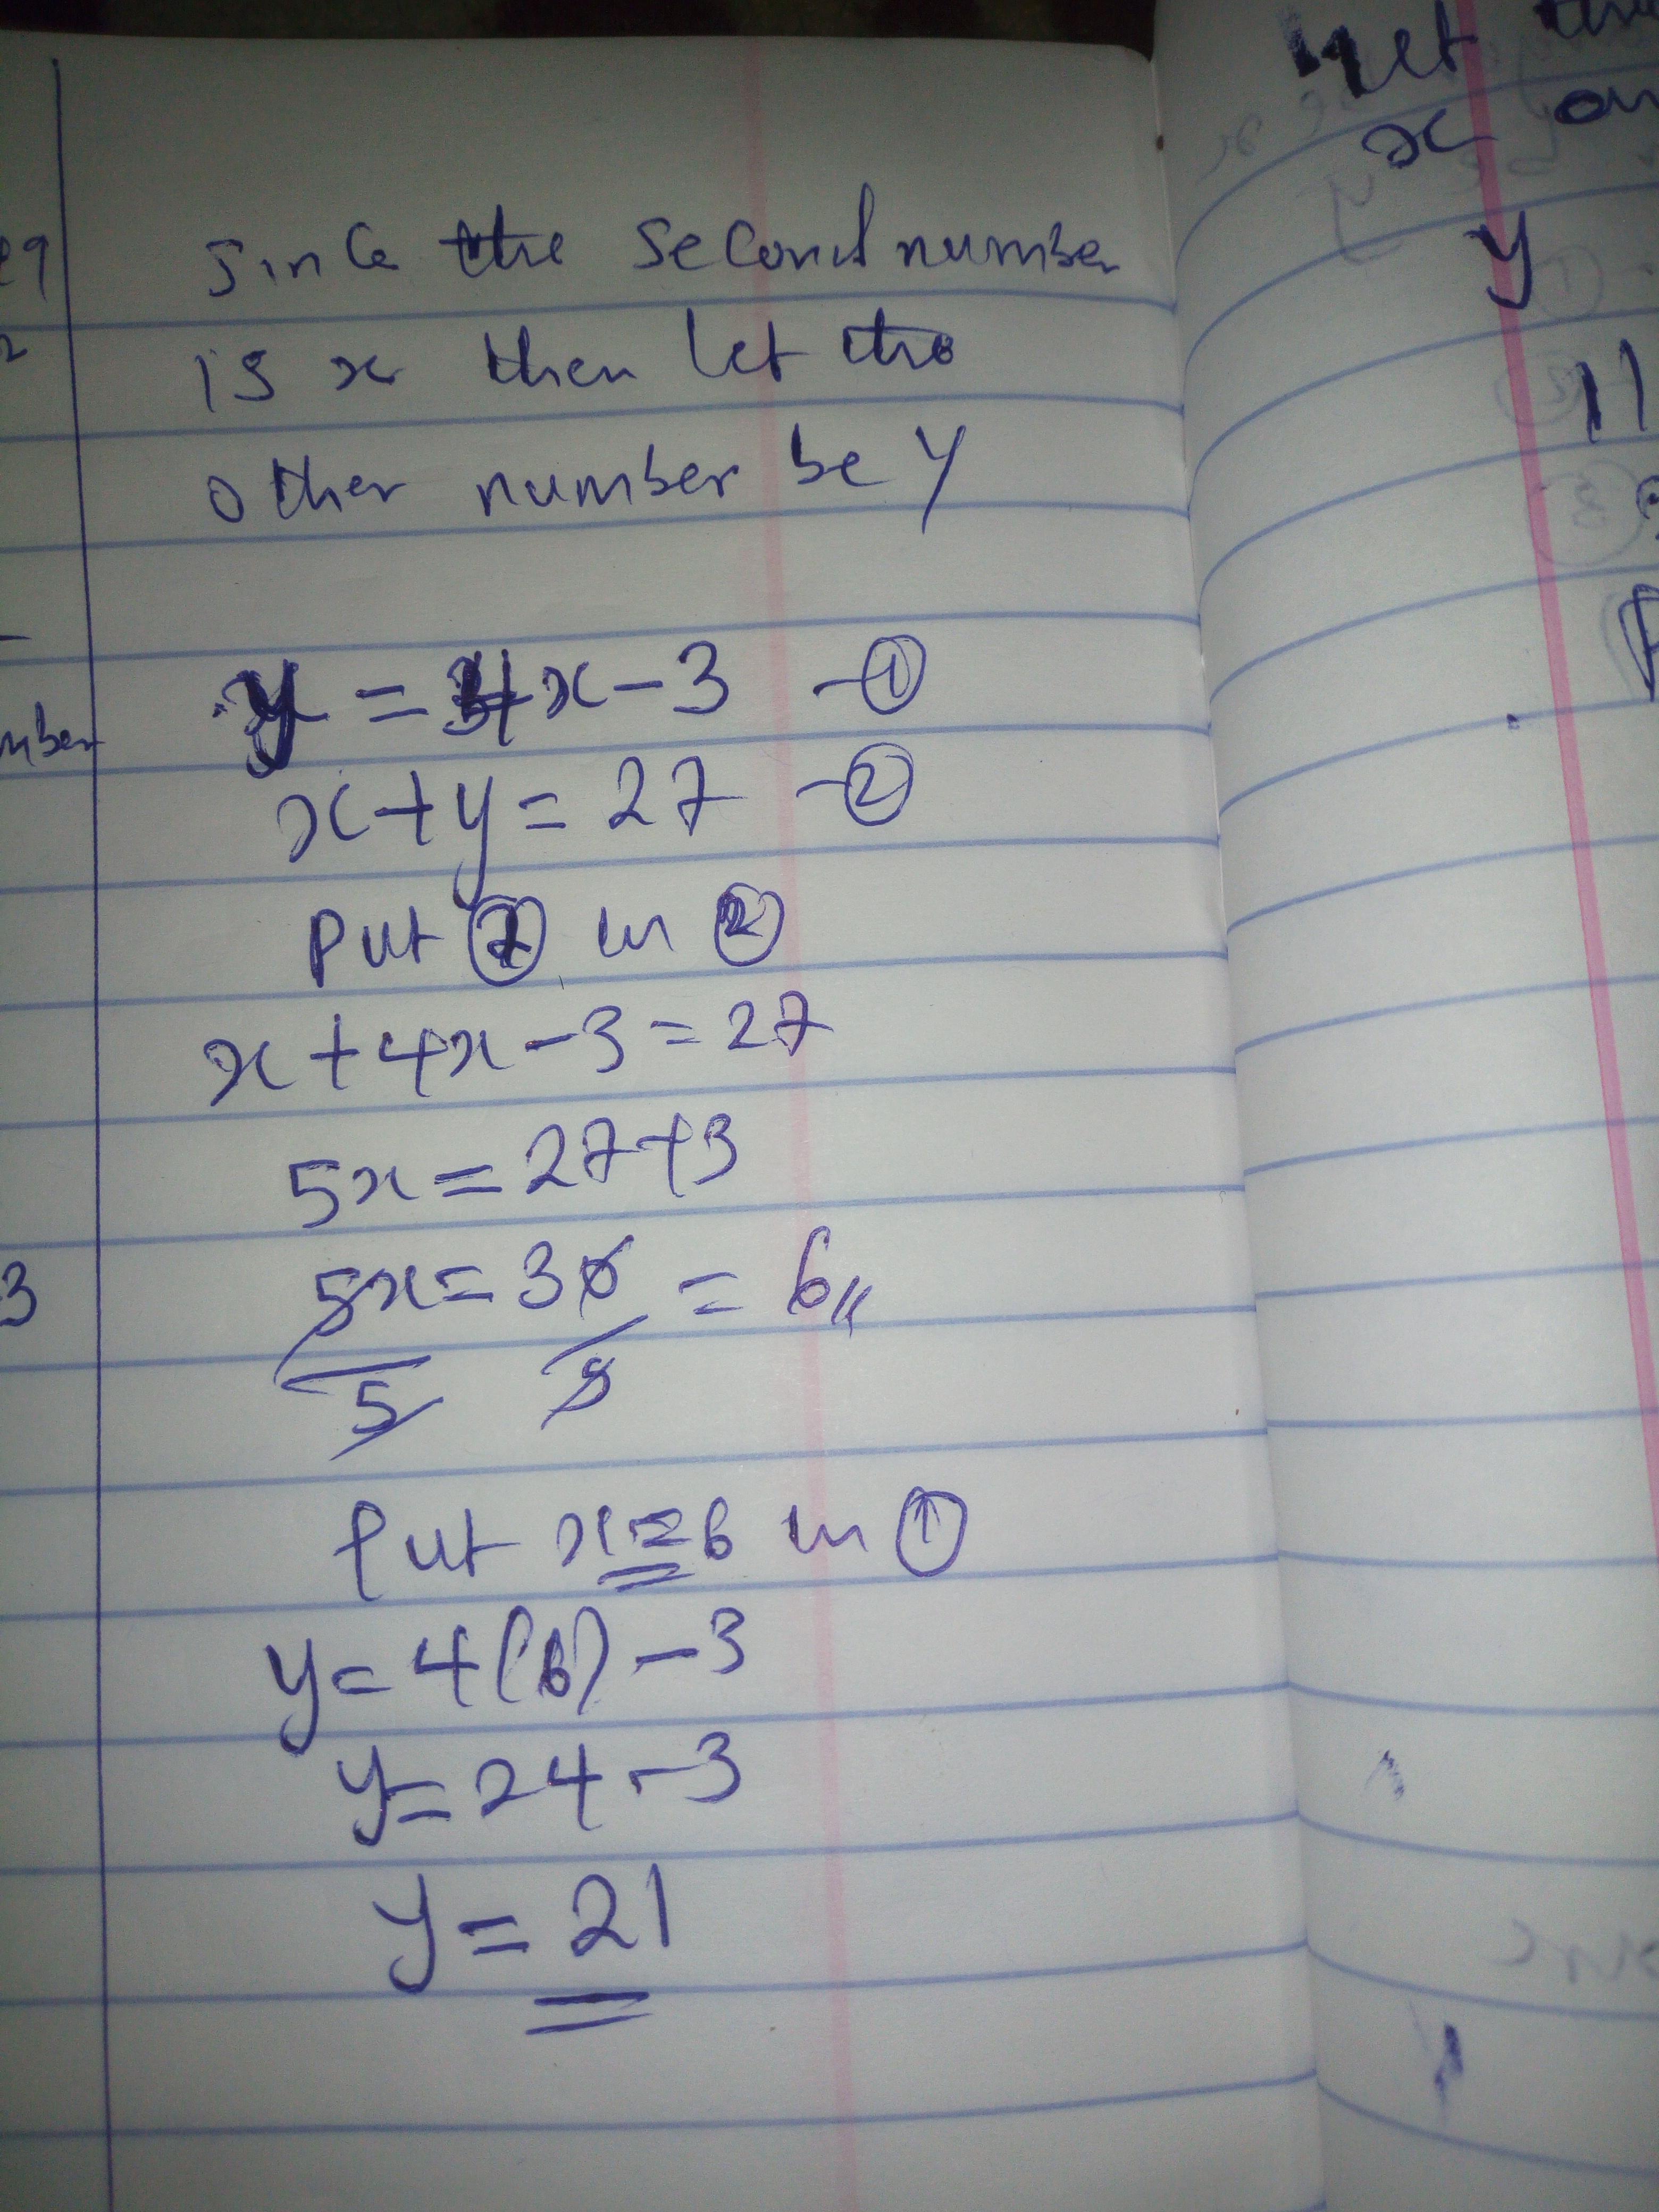 Since the second number
is x then let the
other number be y
y = 4x - 3 - ①
x + y = 27 - ②
Put ① in ②
x + 4x - 3 = 27
5x = 27 + 3
5x = 30 = 6
5 5
Put x = 6 in ①
y = 4(6) - 3
y = 24 - 3
y = 21
mber
3
let
x
y
11